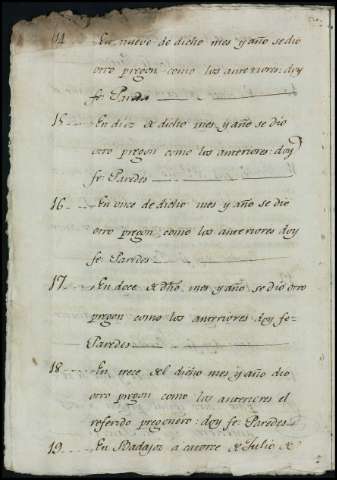 14 En nueve de dicho mes y año se dio
otro pregon como los anteriores: doy
fe: Paredes
15 En diez de dicho mes y año se dio
otro pregon como los anteriores: doy
fe: Paredes
16 En once de dicho mes y año se dio
otro pregon como los anteriores doy
fe: Paredes
17 En doce de dho mes y año se dio otro
pregon como los anteriores doy fe=
Paredes
18 En trece del dicho mes y año dio
otro pregon como los anteriores el
referido pregonero: doy fe: Paredes
19 En Badajoz a catorce de Julio de